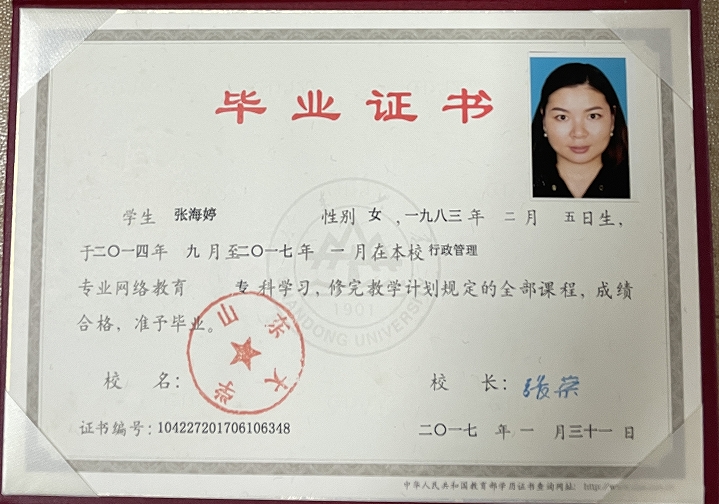 毕业证书
学生 张海婷 性别 女 ,一九八三 年 二 月 五日生,
于二〇一四年 九 月至二〇一七年 一 月在本校 行政管理
专业网络教育 专 科学习,修完教学计划规定的全部课程,成绩
合格,准予毕业。
山东大学
1901
SHANDONG UNIVERSITY
校 名:
校 长: 张荣
证书编号: 104227201706106348
二〇一七 年 一 月三十一 日
中华人民共和国教育部学历证书查询网址: http://www